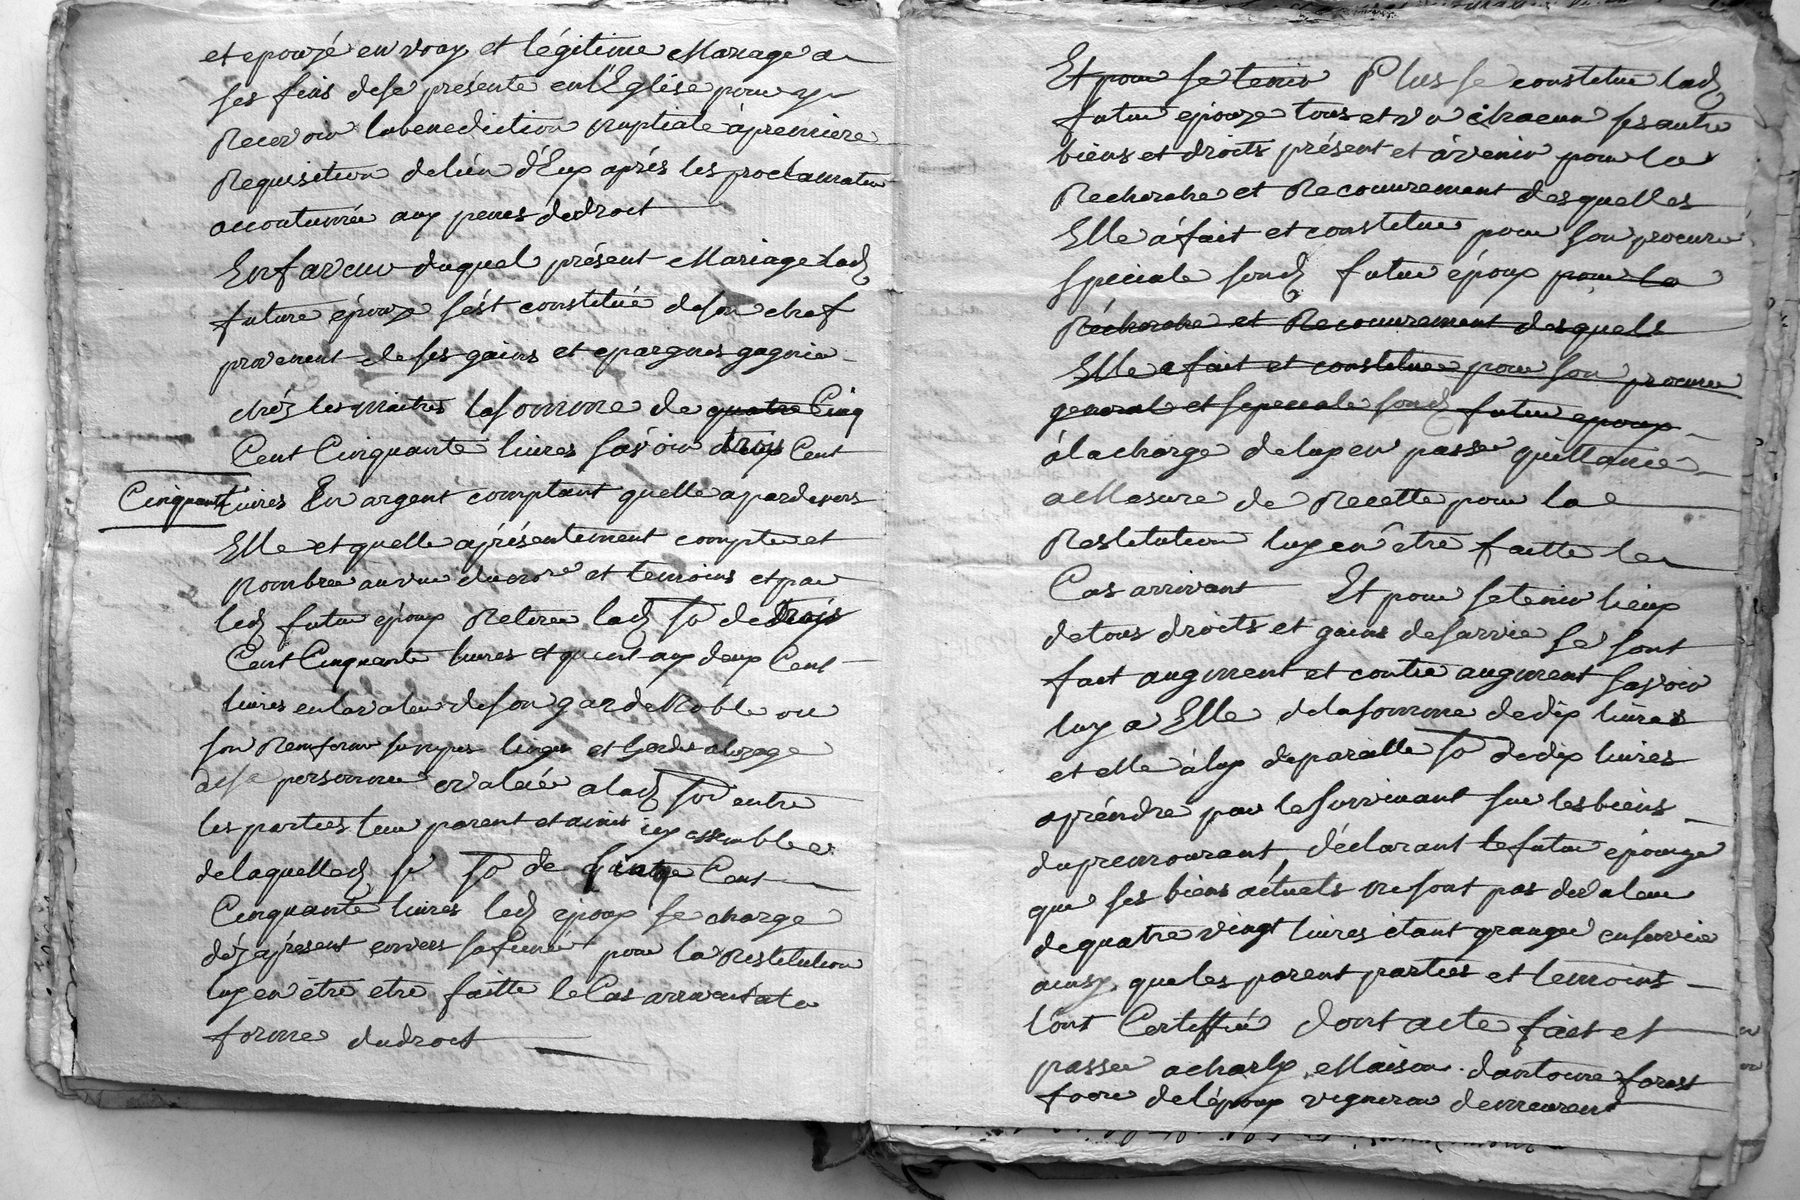 et epouzé en vray et légitime Mariage a
ses fins de se présenté en l'Eglise pour y
Recevoir la benediction nuptiale à premiere
Requisition de l'un d'Eux aprés les proclamation
accoutumée aux peines de droit
En faveur duquel présent Mariage lad
future épouze s'est constitué de son chef
provenent de ses gains et epargnes gagnée
chés les maitres la somme de quatre Cinq
Cent Cinquante livres savoir trois Cent
Cinquante livres En argent comptant quelle a pardevers
Elle et quelle a présentement compte et
Nombree au vue du no.re et temoins et par
led futur époux Retiree lad so de trois
Cent Cinquante livres et quant aux deux Cent
livres en la valeur de son garde Robbe ou
son linges et
de sa personne evaluée a lad so entre
les parties leur parent et amis icy assemblee
de laquelle d so de Cent
Cinquante livres led epoux se charge
déz a présent envers sa future pour la Restitution
luy en étre etre faitte le Cas arrivent a la
forme du droit
Et pour se tenir Plus se constitue lad
future epouze tous et un chacun ses autre
biens et droits présent et à venir pour la
Recherche et Recouvrement desquelles
Elle a fait et constitue pour son procure
speciale sond futur époux pour la
Recherche et Recouvrement desquels
Elle a fait et constitue pour son procure
general et speciale sond futur epoux
à la charge de luy en passe quittance
a Mesure de Recette pour la
Restitution luy en être faitte le
Cas arrivant Et pour se tenir lieux
de tous droits et gains de survie se sont
fait augment et contre augment savoir
luy a Elle de la somme de dix livres
et elle à luy de pareille so de dix livres
a préndre par le survivant sur les biens
du premourant, déclarant le futur épouze
que ses biens actuels ne sont pas de valeur
de quatre vingt livres étant en survie
ainsy que les parent parties et temoins
l'ont Certiffié dont acte fait et
passée a Charly Maison d'antoine forest
frere de l'époux vigneron demeurent